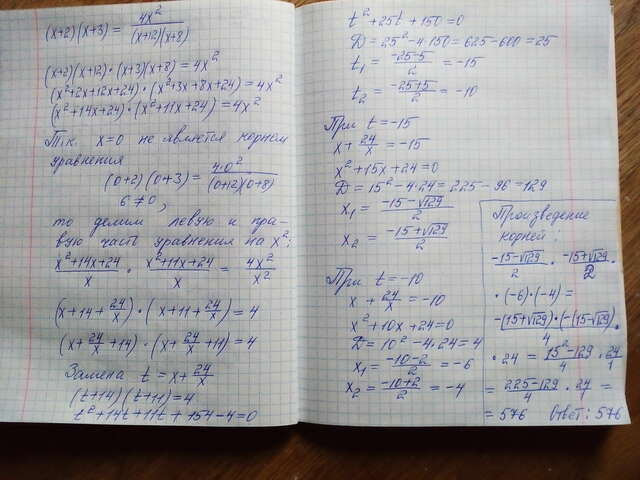 (x+2)(x+3) = 4x²/((x+12)(x+8))
(x+2)(x+12)·(x+3)(x+8) = 4x²
(x²+2x+12x+24)·(x²+3x+8x+24) = 4x²
(x²+14x+24)·(x²+11x+24) = 4x²
Т.к. x=0 не является корнем
уравнения
(0+2)(0+3) = 4·0²/((0+12)(0+8))
6 ≠ 0,
то делим левую и пра-
вую часть уравнения на x²:
(x²+14x+24)/x · (x²+11x+24)/x = 4x²/x²
(x+14+24/x)·(x+11+24/x) = 4
(x+24/x+14)·(x+24/x+11) = 4
Замена t = x+24/x
(t+14)(t+11) = 4
t²+14t+11t+154-4=0
t²+25t+150=0
D = 25²-4·150 = 625-600 = 25
t₁ = (-25-5)/2 = -15
t₂ = (-25+5)/2 = -10
При t = -15
x+24/x = -15
x²+15x+24=0
D = 15²-4·24 = 225-96 = 129
x₁ = (-15-√129)/2
x₂ = (-15+√129)/2
При t = -10
x+24/x = -10
x²+10x+24=0
D = 10²-4·24 = 4
x₁ = (-10-2)/2 = -6
x₂ = (-10+2)/2 = -4
Произведение
корней:
(-15-√129)/2 · (-15+√129)/2 ·
·(-6)·(-4) =
-(15+√129)·(-(15-√129))/4 ·
·24 = (15²-129)/4 · 24/1
= (225-129)/4 · 24/1 =
= 576 Ответ: 576